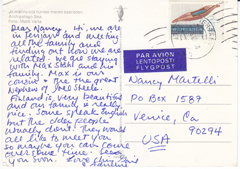 Dear Nancy, Hi, we are
in Finland and meeting
all the family and
finding out how we are
related. We are staying
with Max Seth and his
family. Max is our
cousin & the great
Nephew of
Finland is very beautiful
and our family is really
nice. Some speak English
but the older people
usually don't. They would
all like to meet you
so maybe you can come
over some time.
you soon. Love
PAR AVION
LENTOPOSTI
FLYGPOST
Nancy Martelli
PO Box 1587
Venice, Ca
90294
USA